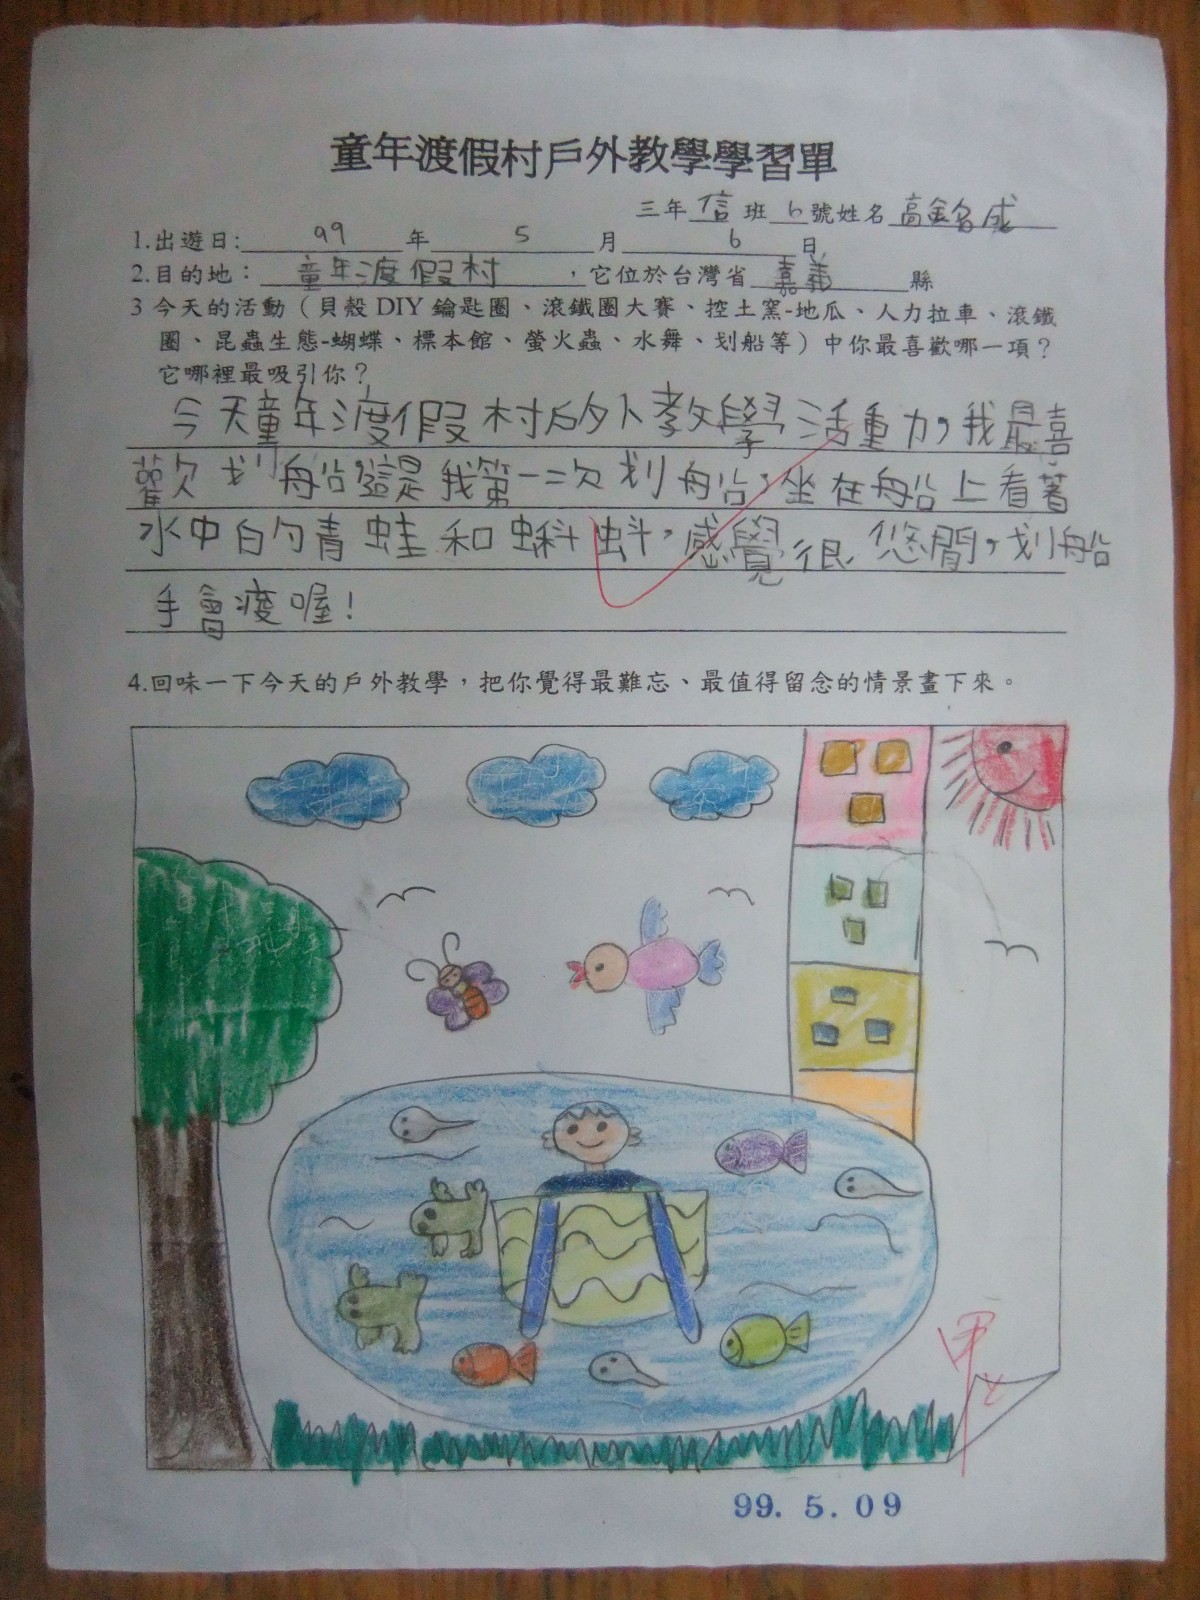 童年渡假村戶外教學學習單
三年信班6號姓名高銘成
1.出遊日:99年5月6日
2.目的地：童年渡假村，它位於台灣省嘉義縣
3 今天的活動（貝殼DIY鑰匙圈、滾鐵圈大賽、控土窯-地瓜、人力拉車、滾鐵
圈、昆蟲生態-蝴蝶、標本館、螢火蟲、水舞、划船等）中你最喜歡哪一項？
它哪裡最吸引你？
今天童年渡假村戶外教學活動，我最喜
歡划船，這是我第一次划船，坐在船上看著
水中的青蛙和蝌蚪，感覺很悠閒，划船
手會痠喔！
4.回味一下今天的戶外教學，把你覺得最難忘、最值得留念的情景畫下來。
甲上
99.5.09